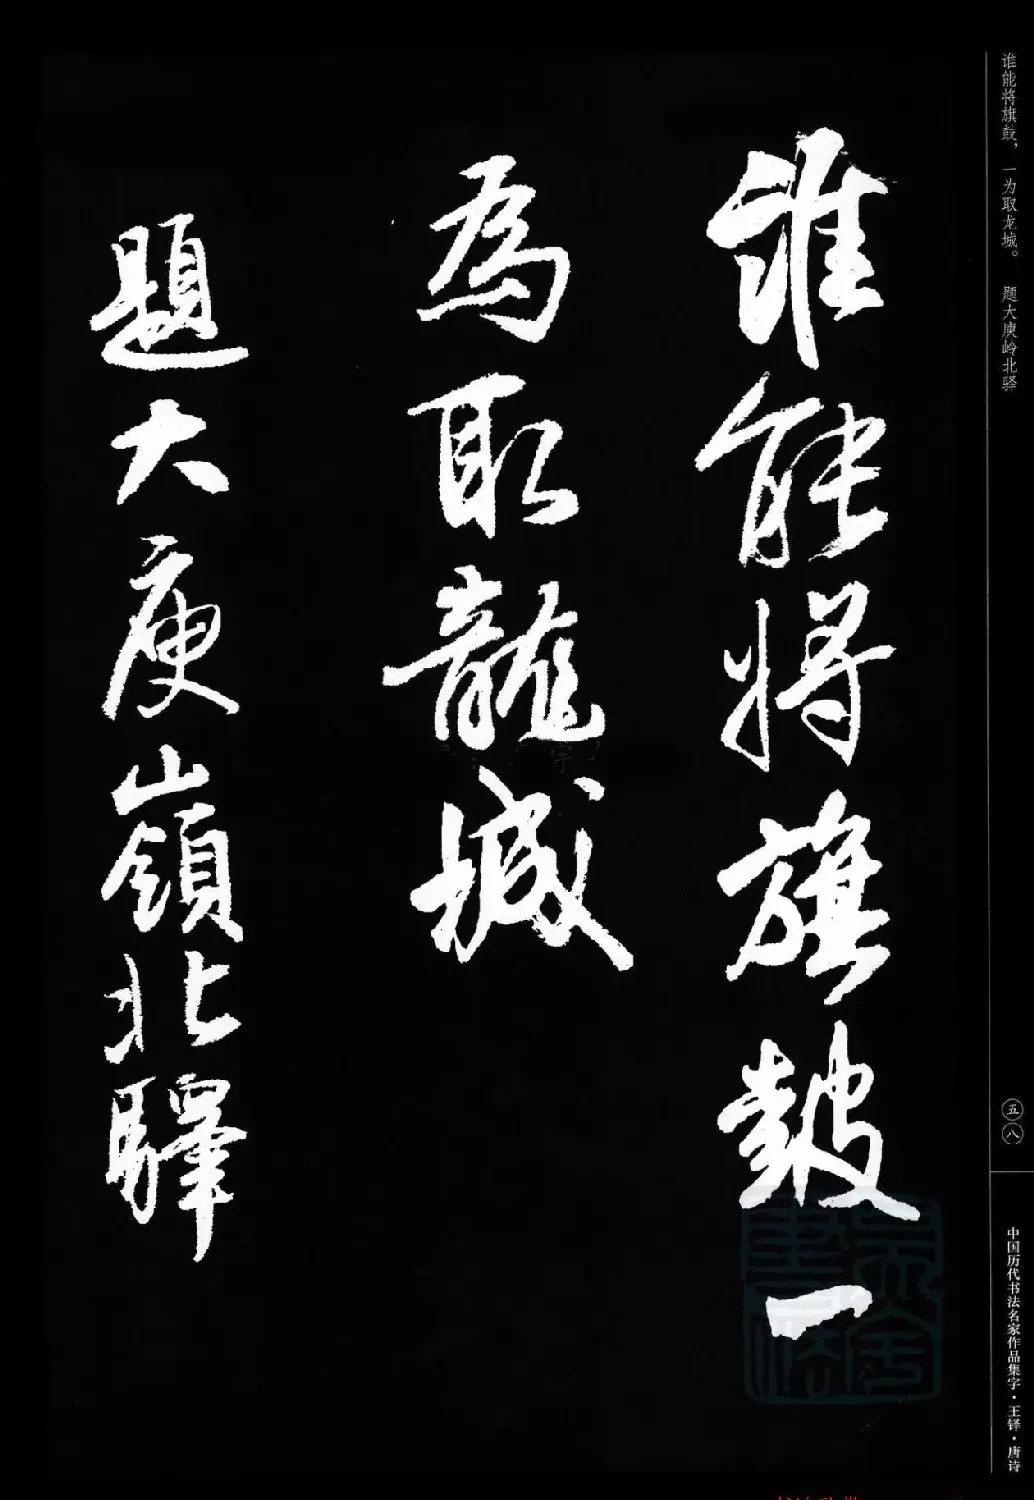 誰能將旗鼓一
為取龍城
題大庾嶺北驛
谁能将旗鼓，一为取龙城。 题大庾岭北驿
五八
中国历代书法名家作品集字·王铎·唐诗